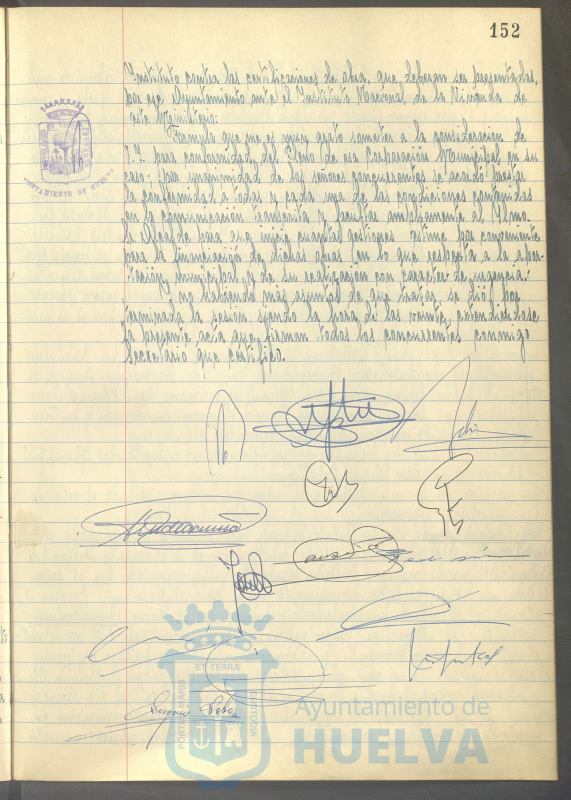 152
Instituto contra las certificaciones de obra, que deberan ser presentadas,
por ese Ayuntamiento ante el Instituto Nacional de la Vivienda de
este Ministerio.
Formula que me es muy grato someter a la consideracion de
V.I. para conformidad del Pleno de esa Corporación Municipal, en su
caso; por unanimidad de los señores concurrentes se acordó prestar
la conformidad a todas y cada una de las condiciones contenidas
en la comunicación transcrita y facultar ampliamente al Iltmo.
Sr Alcalde para que inicie cuantas gestiones estime por conveniente
para la financiación de dichas obras en lo que respecta a la apor-
tación municipal y de su realización con caracter de urgencia.
Y no habiendo más asuntos de que tratar, se dió por
terminada la sesion, siendo la hora de las veinte, extendiéndose
la presente acta que firman todos los concurrentes conmigo
Secretario que certifico.
ET TERRÆ
PORTUS MARIS
CUSTODIA
Ayuntamiento de
HUELVA